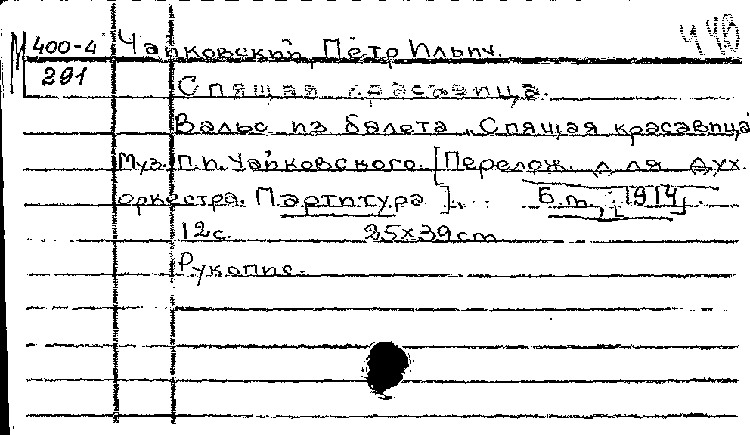 440
М 400-4 Чайковский, Петр Ильич.
291
Спящая красавица.
Вальс из балета „Спящая красавица
Муз. П.И. Чайковского. [Перелож. для дух.
оркестра. Партитура]. Б.м., [1914].
12с. 25x39cm
Рукопис.